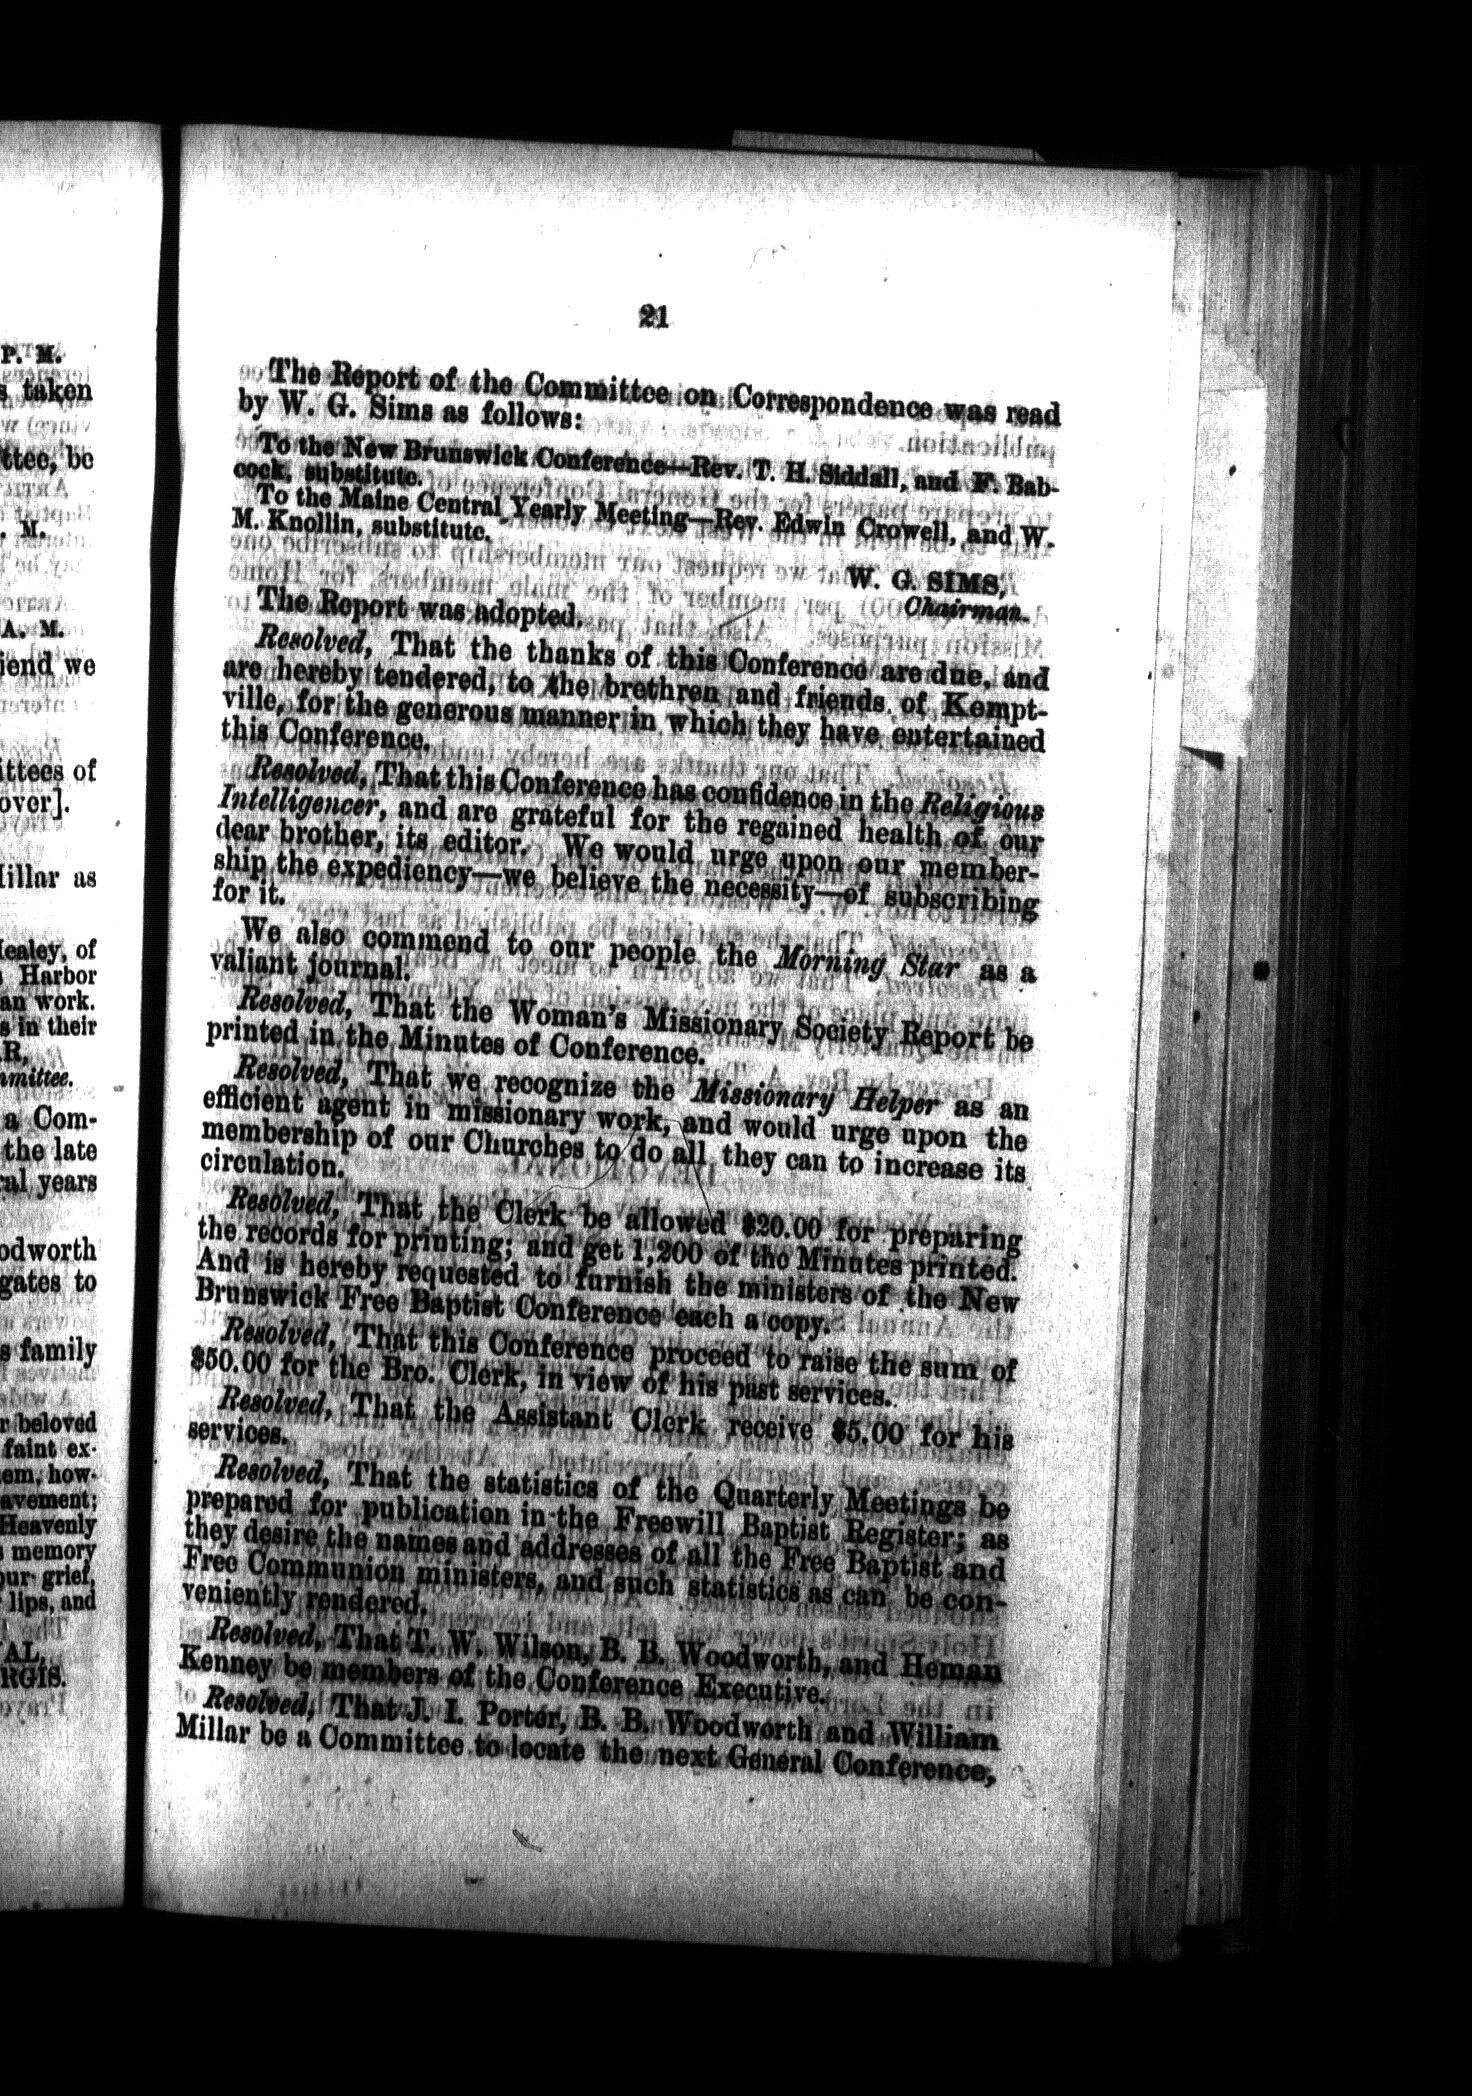 P. M.
s taken
ttee, be
. M.
A. M.
iend we
ittees of
over].
Millar as
Healey, of
s Harbor
an work.
s in their
R,
mmittee.
a Com-
the late
ral years
odworth
gates to
s family
r beloved
faint ex-
em, how-
avement;
Heavenly
s memory
our grief,
lips, and
TAL,
RGIS.
21
The Report of the Committee on Correspondence was read
by W. G. Sims as follows:
To the New Brunswick Conference—Rev. T. H. Siddall, and F. Bab-
cock, substitute.
To the Maine Central Yearly Meeting—Rev. Edwin Crowell, and W.
M. Knollin, substitute.
W. G. SIMS,
Chairman.
The Report was adopted.
Resolved, That the thanks of this Conference are due, and
are hereby tendered, to the brethren and friends of Kempt-
ville, for the generous manner in which they have entertained
this Conference.
Resolved, That this Conference has confidence in the Religious
Intelligencer, and are grateful for the regained health of our
dear brother, its editor. We would urge upon our member-
ship the expediency—we believe the necessity—of subscribing
for it.
We also commend to our people the Morning Star as a
valiant journal.
Resolved, That the Woman's Missionary Society Report be
printed in the Minutes of Conference.
Resolved, That we recognize the Missionary Helper as an
efficient agent in missionary work, and would urge upon the
membership of our Churches to do all they can to increase its
circulation.
Resolved, That the Clerk be allowed $20.00 for preparing
the records for printing; and get 1,200 of the Minutes printed.
And is hereby requested to furnish the ministers of the New
Brunswick Free Baptist Conference each a copy.
Resolved, That this Conference proceed to raise the sum of
$50.00 for the Bro. Clerk, in view of his past services.
Resolved, That the Assistant Clerk receive $5.00 for his
services.
Resolved, That the statistics of the Quarterly Meetings be
prepared for publication in the Freewill Baptist Register; as
they desire the names and addresses of all the Free Baptist and
Free Communion ministers, and such statistics as can be con-
veniently rendered.
Resolved, That T. W. Wilson, B. B. Woodworth, and Heman
Kenney be members of the Conference Executive.
Resolved, That J. I. Porter, B. B. Woodworth and William
Millar be a Committee to locate the next General Conference,